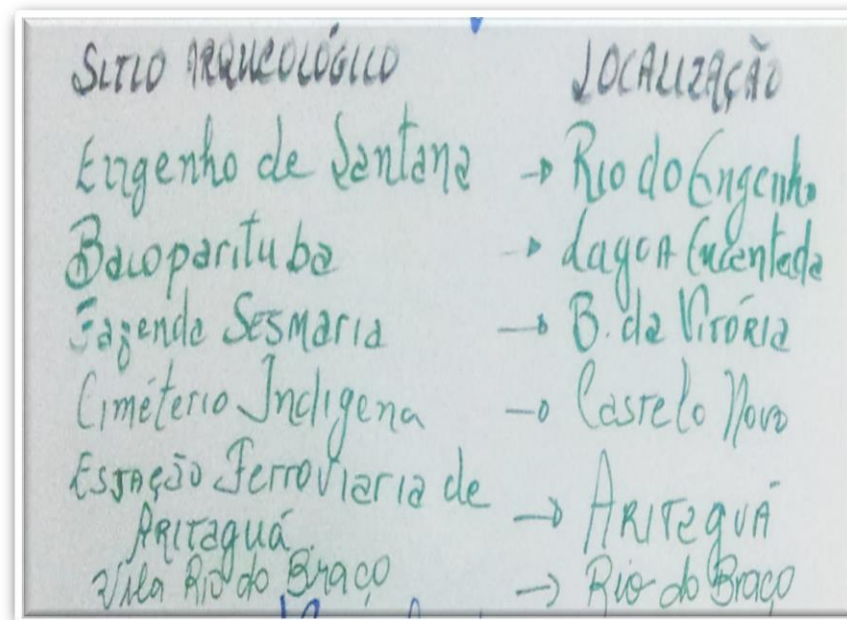 SITIO ARQUEOLÓGICO LOCALIZAÇÃO
Engenho de Santana → Rio do Engenho
Bacoparituba → Lagoa Encantada
Fazenda Sesmaria → B. da Vitória
Ciméterio Indigena → Castelo Novo
Estação Ferroviaria de
Aritaguá → Aritaguá
Vila Rio do Braço → Rio do Braço